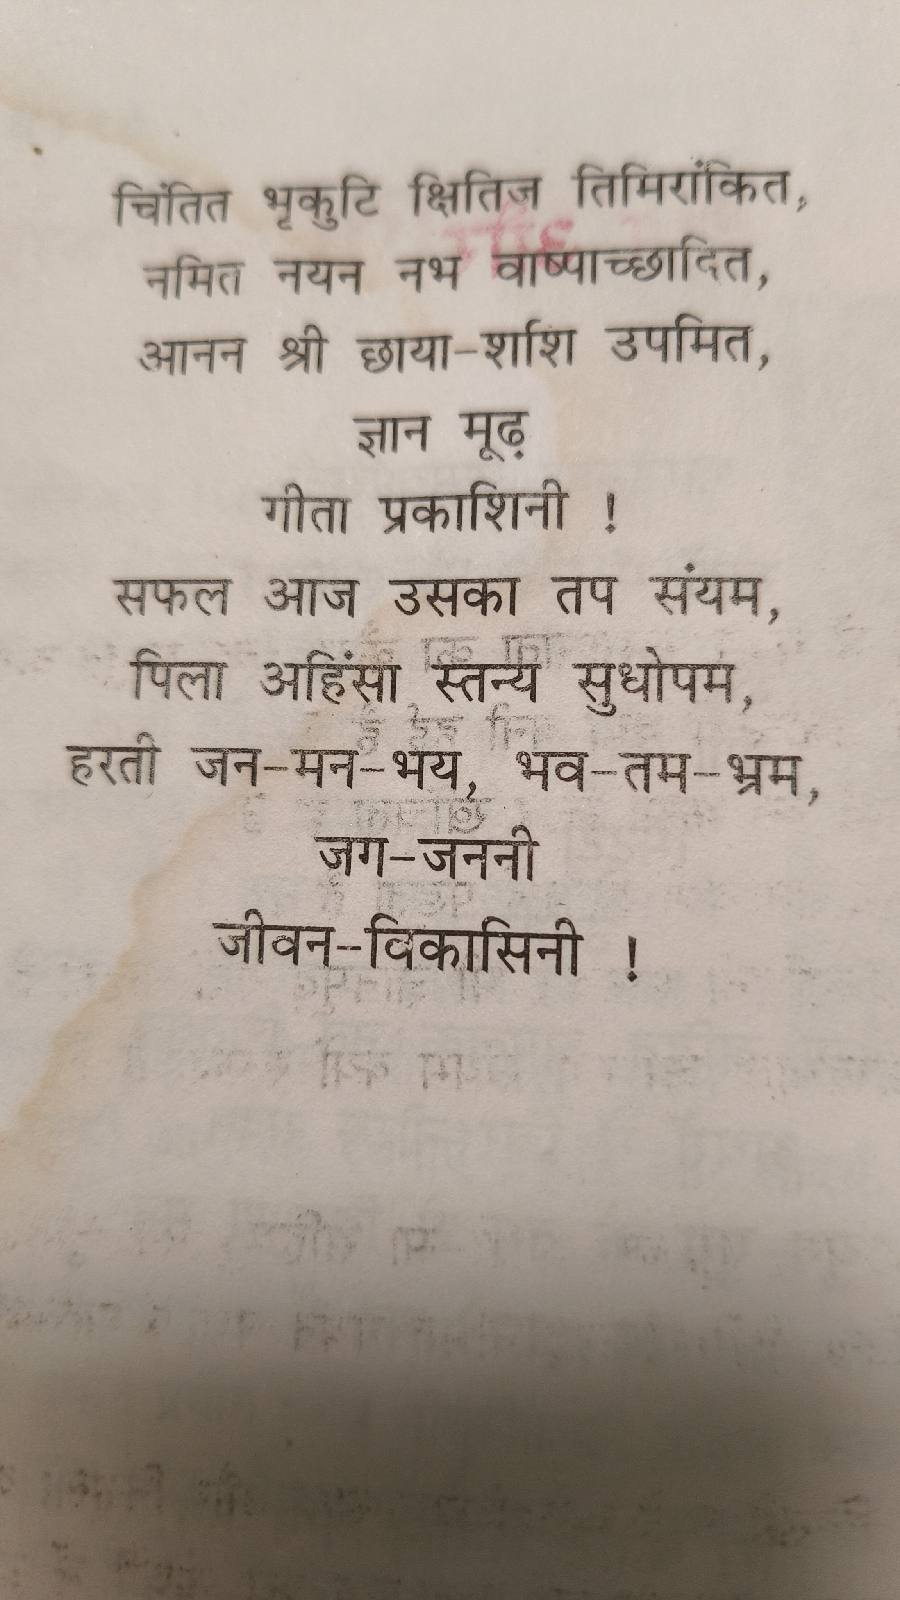 चिंतित भृकुटि क्षितिज तिमिरांकित,
नमित नयन नभ वाष्पाच्छादित,
आनन श्री छाया-शशि उपमित,
ज्ञान मूढ़
गीता प्रकाशिनी !
सफल आज उसका तप संयम,
पिला अहिंसा स्तन्य सुधोपम,
हरती जन-मन-भय, भव-तम-भ्रम,
जग-जननी
जीवन-विकासिनी !